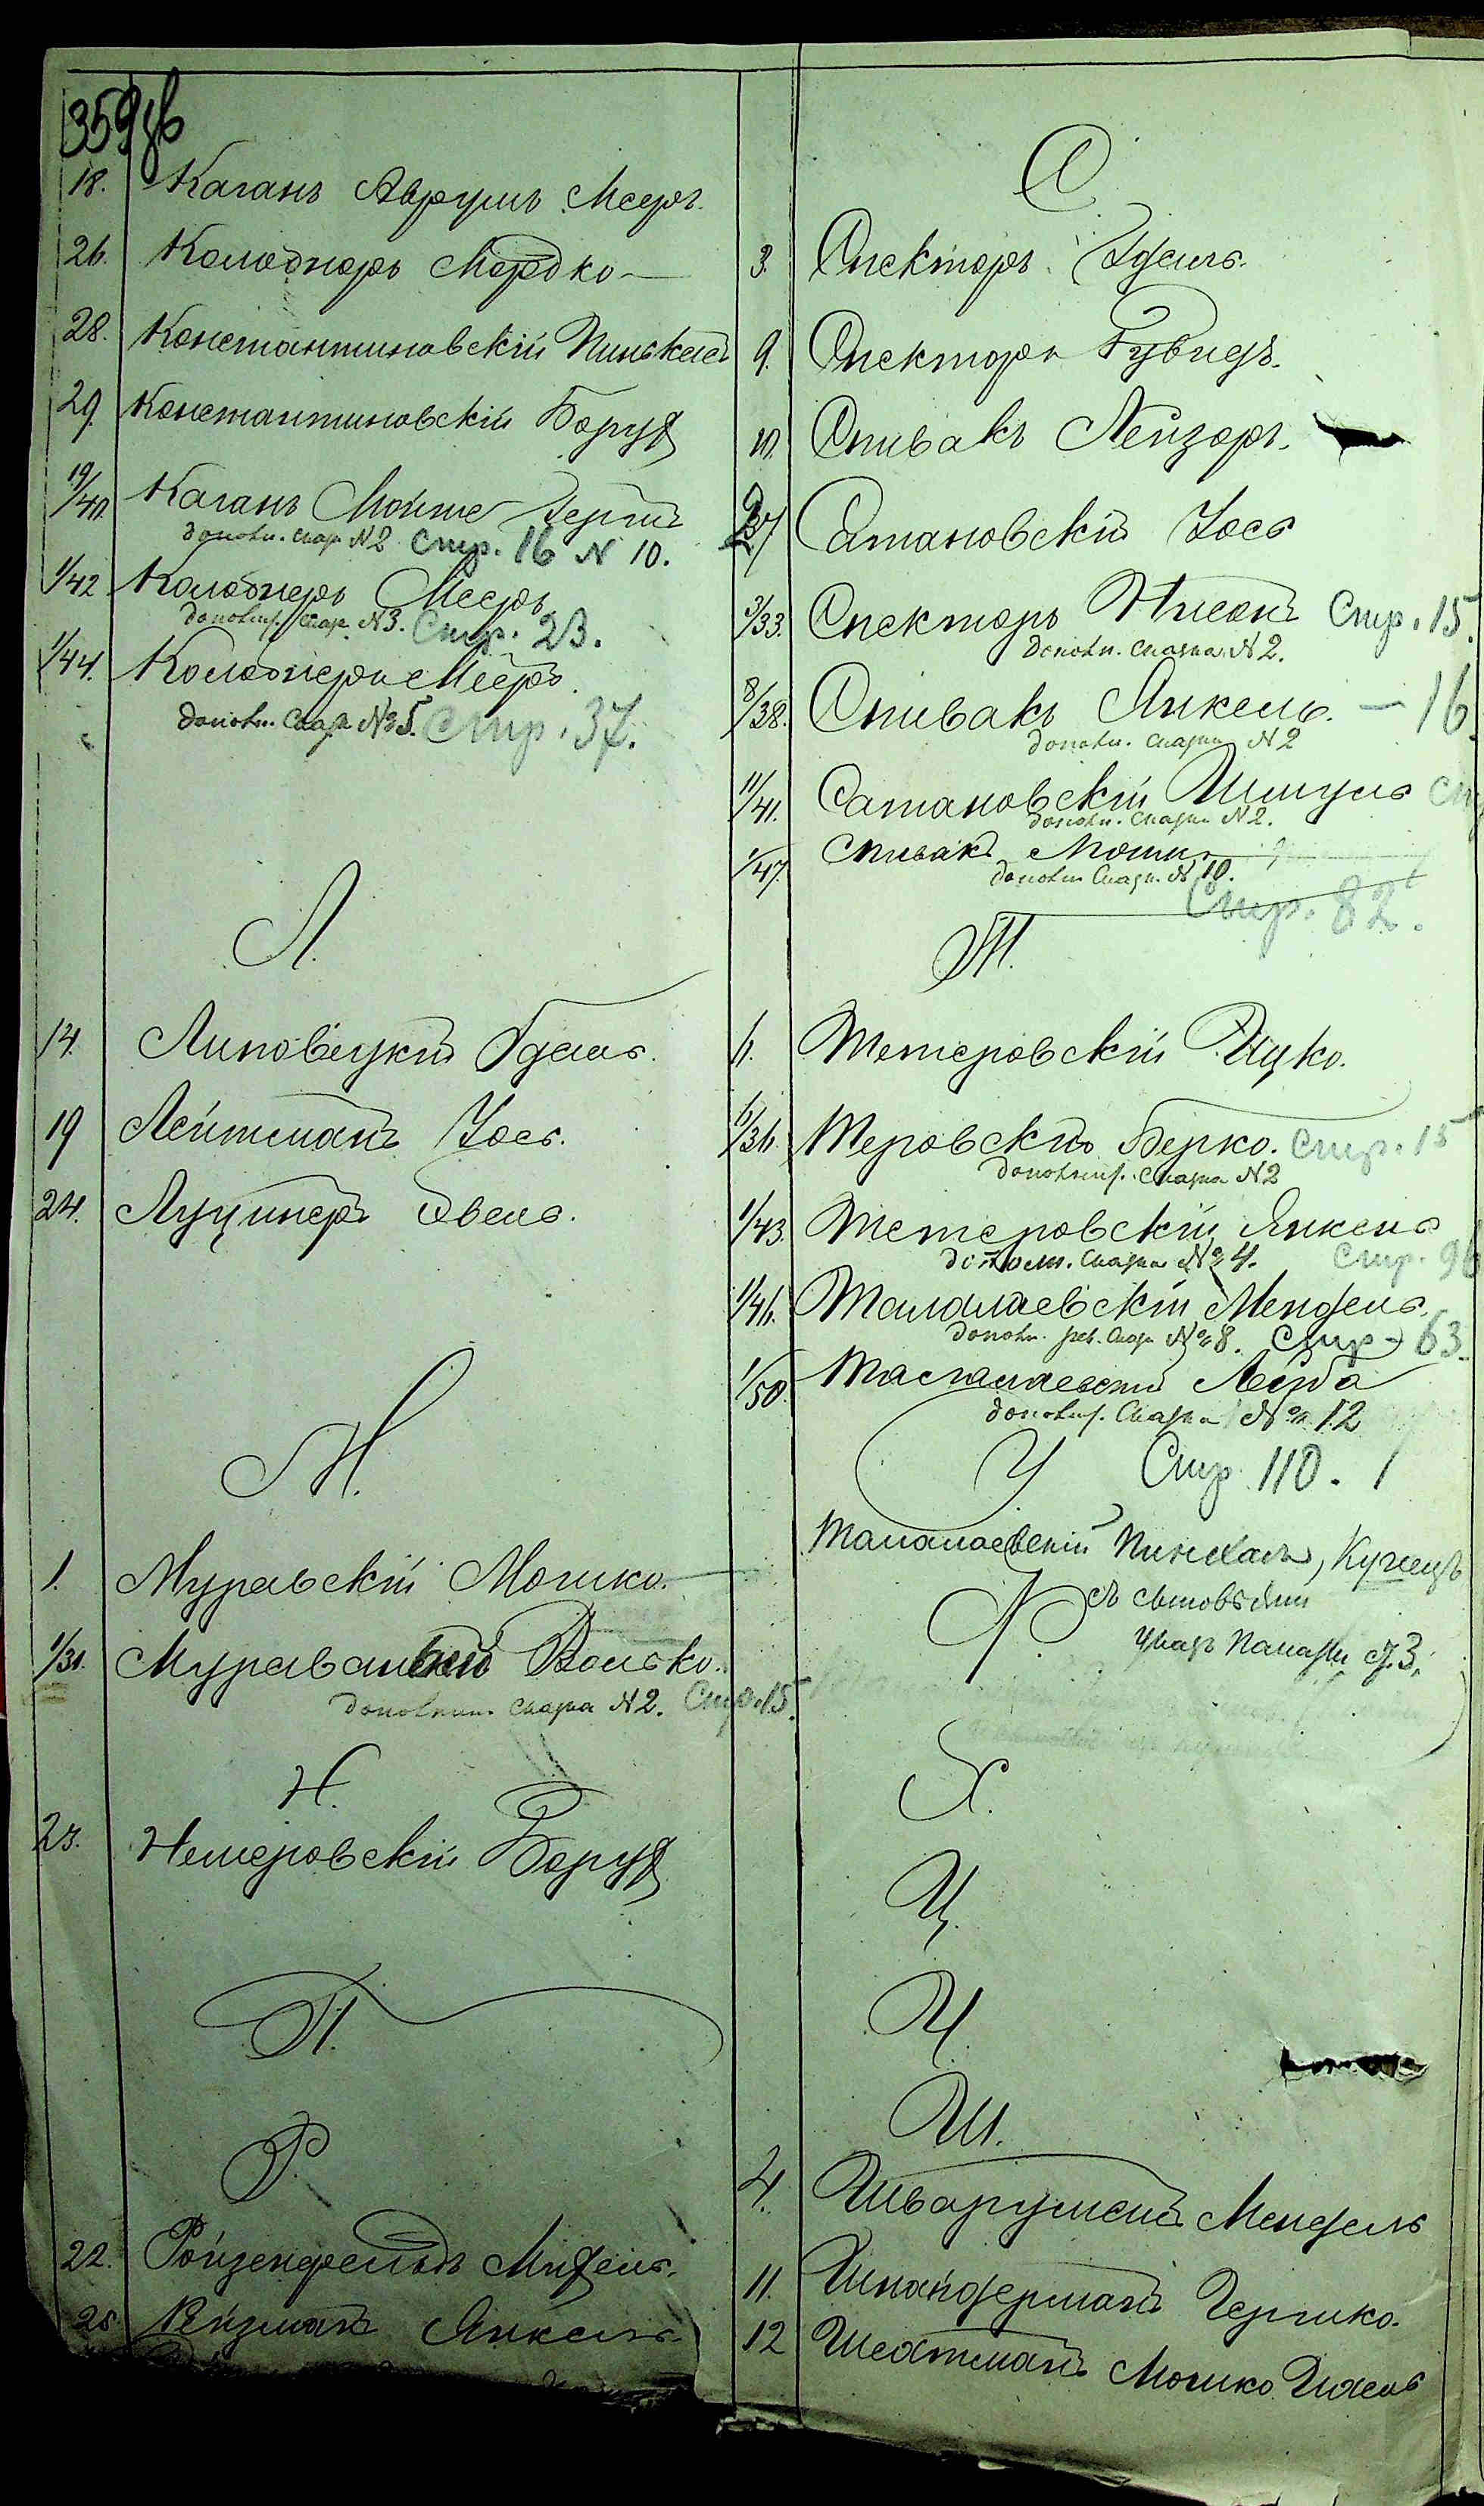 359об
18. Каганъ Аврумъ Меерь.
26. Колоднеръ Мордко
28. Константиновскій Пинькасъ
29. Константиновскій Борух
19/40. Каганъ Мойше Герш
дополн. скаж. №2 Стр. 16 № 10.
1/42 Колоднеръ Мееръ
дополнит. скаж. №3. Стр. 23.
1/44. Колоднеръ Мееръ.
дополн. скаж. №5. Стр. 37.
Л.
14. Липовецкій Удель.
19 Лейтманъ Іось.
24. Луцинеръ
М.
1. Муравскій Мошко.
1/31. Волько.
дополнит. скажа №2. Стр. 15.
Н.
23. Немеровскій Борух
П.
Р.
22. Ройзенфельдъ
25. Рейзманъ Янкель
С
3. Спекторъ
9. Спекторъ
10. Спивакъ Лейзоръ.
27 Сатановскій Іось
3/33. Спекторъ Нисонъ Стр. 15.
дополн. скажа №2.
8/38. Спивакъ Янкель. — 16.
дополн. скажа №2
11/41. Сатановскій Шмуль
дополн. скажа №2.
1/47. Спивакъ Мошко
дополн скаж. № 10.
Стр. 82.
Т.
6. Тетеровскій Ицко.
6/36. Теровскій Берко. Стр. 15
дополнит. скажа №2
1/43. Тетеровскій Янкель
дополн. скажа №4. Стр. 96
1/46. Талалаевскій Мендель.
дополн. рев. скаж №8. Стр. 63.
1/50. Лейба
дополнит. Скажа № 12
У Стр. 110.
Талалаевскій Пинхасъ, Купецъ
Ф съ сыновьями
Х.
Ц.
Ч.
Ш.
4. Мендель
11. Шнайдерманъ Гершко.
12 Шехтманъ Мошко